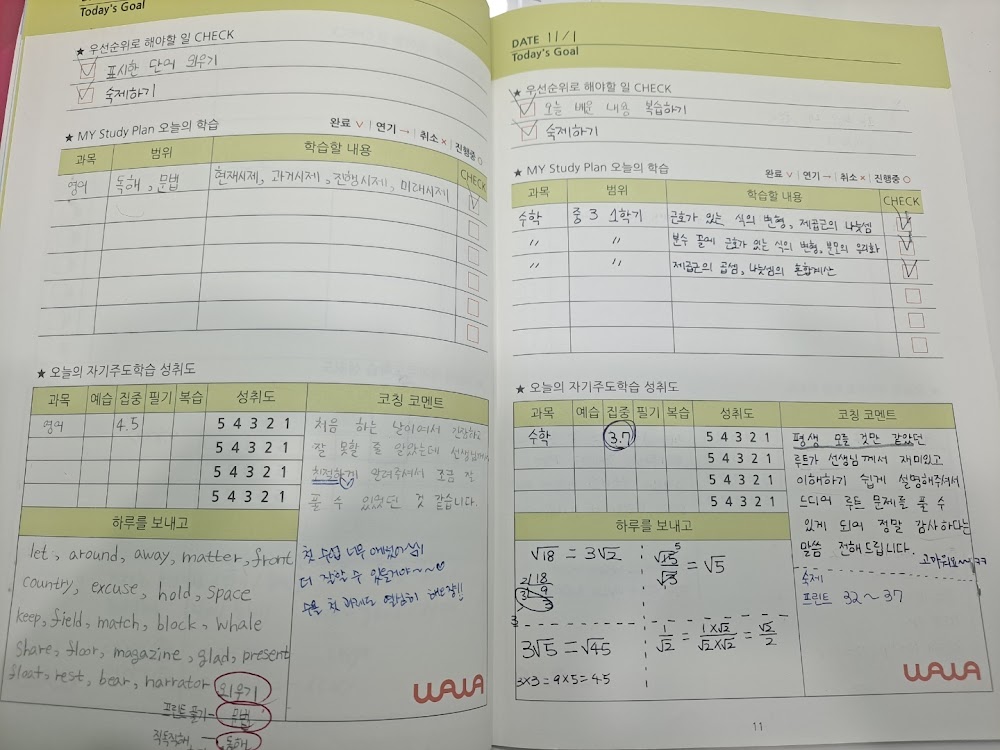 Today's Goal
★ 우선순위로 해야할 일 CHECK
표시한 단어 외우기
숙제하기
★ MY Study Plan 오늘의 학습
완료 ∨ | 연기 → | 취소 × | 진행중 ○
과목 범위 학습할 내용 CHECK
영어 독해, 문법 현재시제, 과거시제, 진행시제, 미래시제
★ 오늘의 자기주도학습 성취도
과목 예습 집중 필기 복습 성취도 코칭 코멘트
영어 4.5 5 4 3 2 1
5 4 3 2 1
5 4 3 2 1
5 4 3 2 1
처음 하는 날이여서 긴장하고
잘 못할 줄 알았는데 선생님께서
친절하게 알려주셔서 조금 잘
풀 수 있었던 것 같습니다.
첫 수업 너무
더 잘할 수 있을거야~~
하루를 보내고
let, around, away, matter, front
country, excuse, hold, space
keep, field, match, block, whale
share, floor, magazine, glad, present
float, rest, bear, narrator 외우기
프린트 풀기 - 문법
직독직해 - 독해
WAWA
DATE 11/1
Today's Goal
★ 우선순위로 해야할 일 CHECK
오늘 배운 내용 복습하기
숙제하기
★ MY Study Plan 오늘의 학습
완료 ∨ | 연기 → | 취소 × | 진행중 ○
과목 범위 학습할 내용 CHECK
수학 중 3 1학기 근호가 있는 식의 변형, 제곱근의 나눗셈
〃 〃 분수 꼴에 근호가 있는 식의 변형, 분모의 유리화
〃 〃 제곱근의 곱셈, 나눗셈의 혼합계산
★ 오늘의 자기주도학습 성취도
과목 예습 집중 필기 복습 성취도 코칭 코멘트
수학 3.7 5 4 3 2 1
5 4 3 2 1
5 4 3 2 1
5 4 3 2 1
평생 모를 것만 같았던
루트가 선생님께서 재미있고
이해하기 쉽게 설명해주셔서
드디어 루트 문제를 풀 수
있게 되어 정말 감사하다는
말씀 전해드립니다.
고마워요~~ㅋㅋ
숙제
프린트 32~37
하루를 보내고
√18 = 3√2
2) 18
3) 9
3
√15/√3 = √5
5
3√5 = √45
3×3=9×5=45
1/√2 = 1×√2/√2×√2 = √2/2
WAWA
11